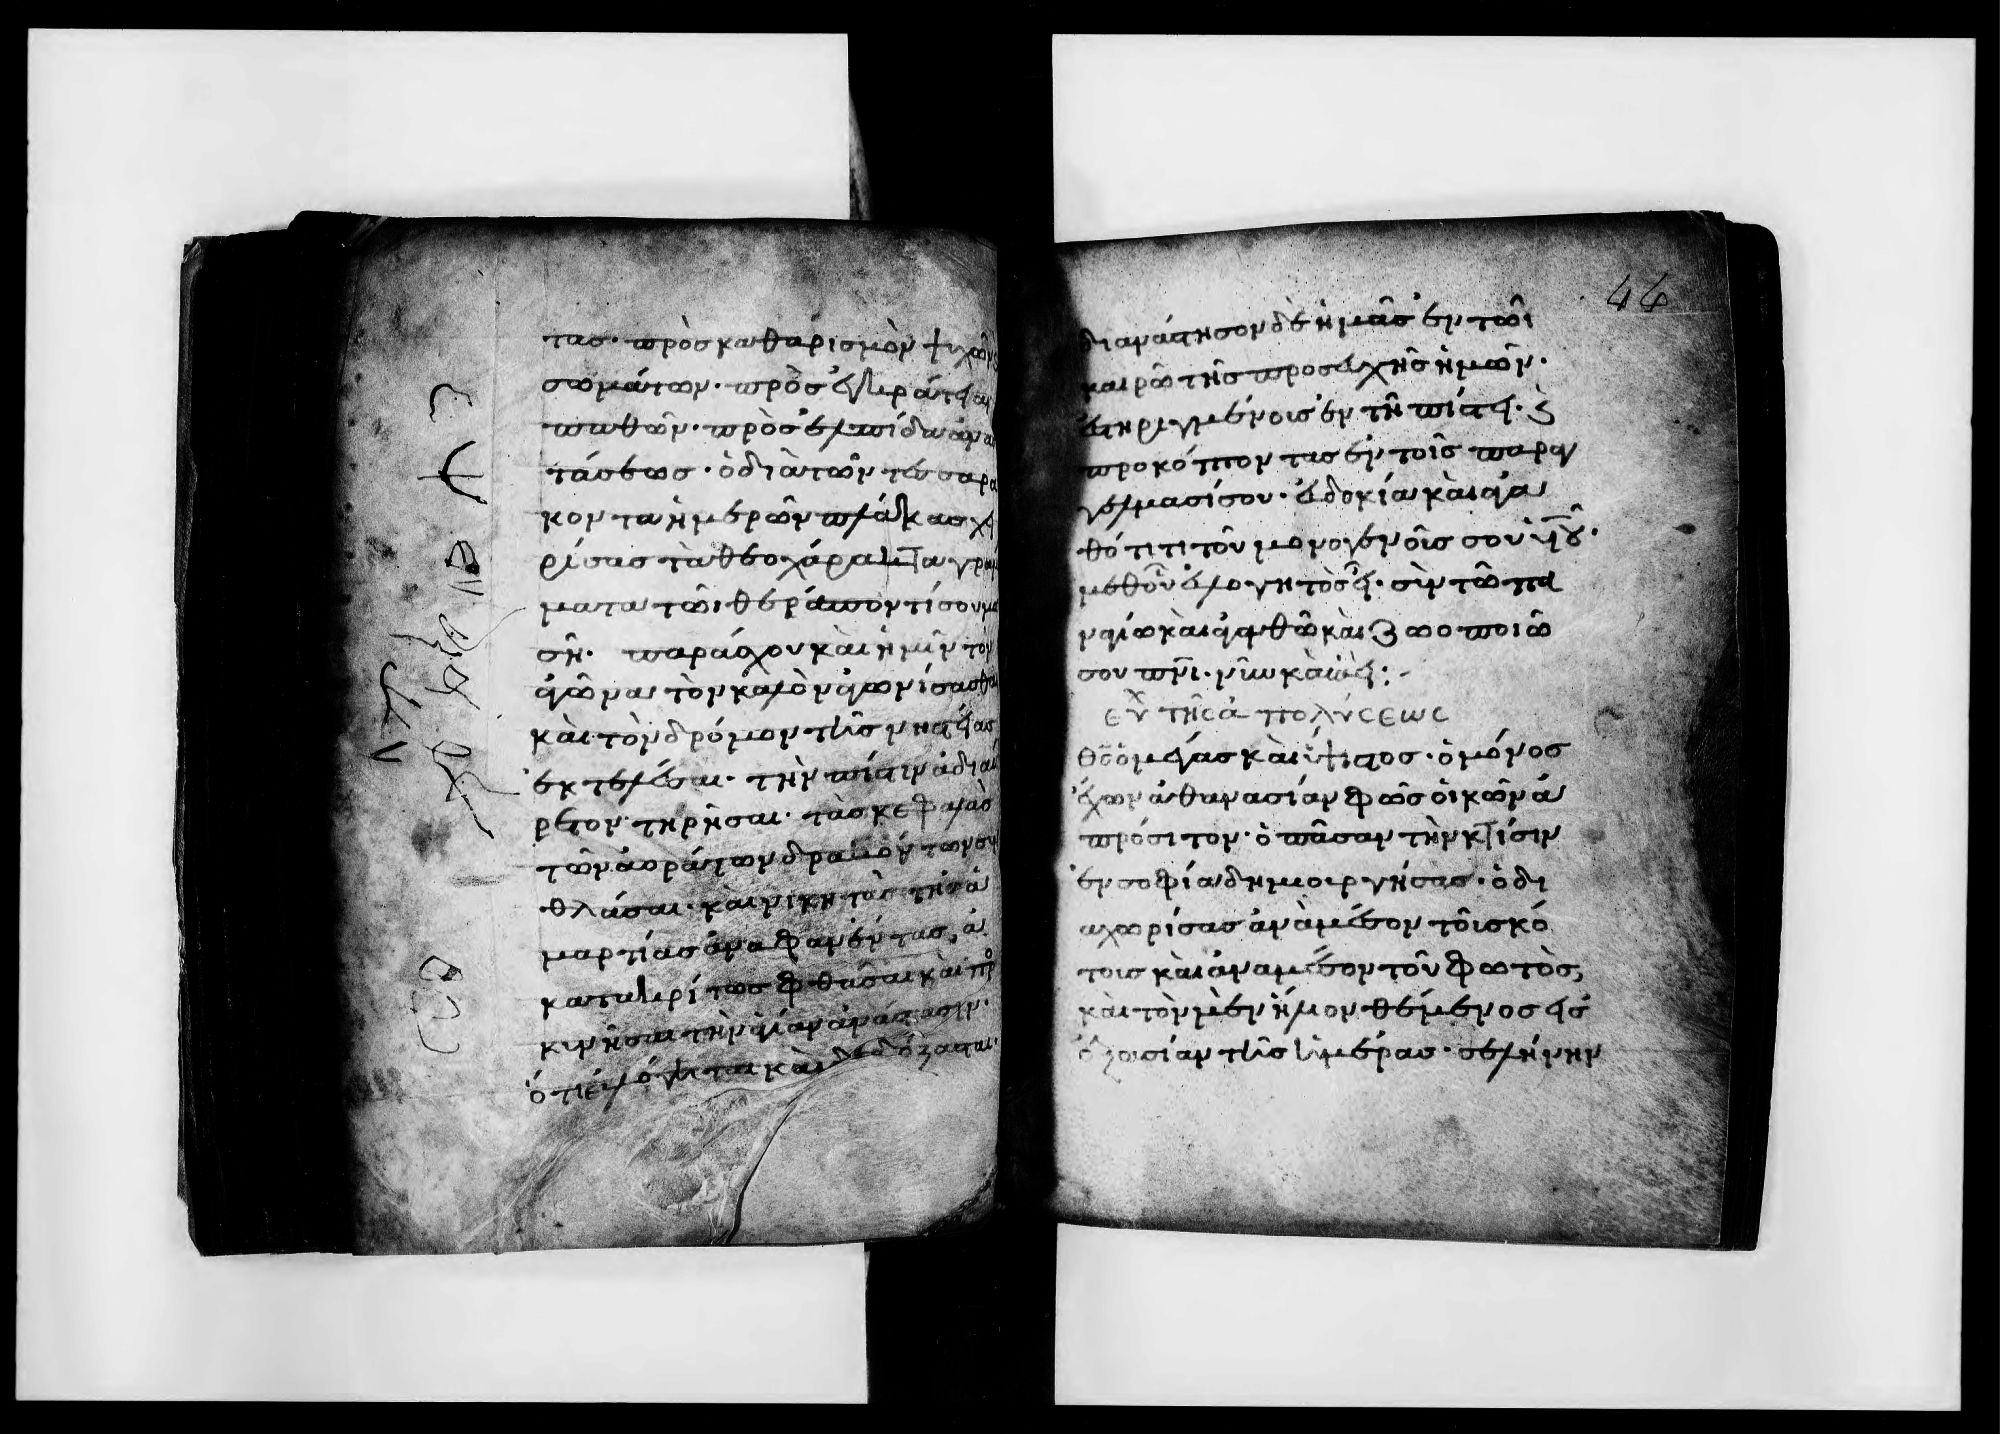 τας· πρὸς καθάρισμὸν ψυχῶν ϛ
σωμάτων· πρὸς ἐγκράτειαν
παθῶν· πρὸς ἐλπίδα ἀνα
τάσεως· ὁ διὰ τῶν τεσσαρα
κοντα ἡμερῶν πλάκας χει
ρίσας τὰ θεοχάρακτα γράμ
ματα τῶι θεράποντί σου μω
σῆ· παράσχου καὶ ἡμῖν τὸν
ἀγῶνα τὸν καλὸν ἀγωνίσασθαι
καὶ τὸν δρόμον τῆς νηστείας
ἐκτελέσαι· τὴν πίστιν ἀδιαί
ρετον τηρῆσαι· τὰς κεφαλὰς
τῶν ἀοράτων δρακόντων συν
θλάσαι· καὶ νικητὰς τῆς ἁ
μαρτίας ἀναφανέντας, ἀ
κατακρίτως φθάσαι καὶ προσ
κυνῆσαι τὴν ἁγίαν ἀνάστασιν·
ὁτι εὐλόγηται καὶ δεδόξασται·
44
διανάστησον δὲ ἡμᾶς ἐν τῶι
καιρῶ τῆς προσευχῆς ἡμῶν·
ἐστηριγμένοις ἐν τῆ πίστει· ϛ
προκόπτοντας ἐν τοῖς παραγ
γέλμασί σου· εὐδοκία καὶ ἀγα
θότιτι τοῦ μονογενοῦς σου υἱοῦ·
μεθ οὗ εὐλογητὸς εἶ· σὺν τῶ πα
ναγίω καὶ ἀγαθῶ καὶ ζωοποιῶ
σου πνι· νῦν καὶ ἀεὶ:
ευχ τῆς ἀπολύσεως
θς ὁ μέγας καὶ ὕψιστος· ὁ μόνος
ἔχων ἀθανασίαν φῶς οἰκῶν ἀ
πρόσιτον· ὁ πᾶσαν τὴν κτίσιν
ἐν σοφία δημιουργήσας· ὁ δι
αχωρίσας ἀνὰ μέσον τοῦ σκό
τους καὶ ἀνα μέσον τοῦ φωτὸς,
καὶ τὸν μὲν ἥλιον θέμενος εἰς
ἐξουσίαν τῆς ἡμέρας· σελήνην